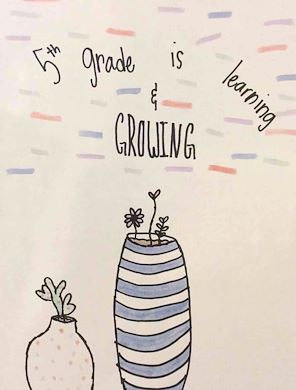 5th grade is learning
&
GROWING